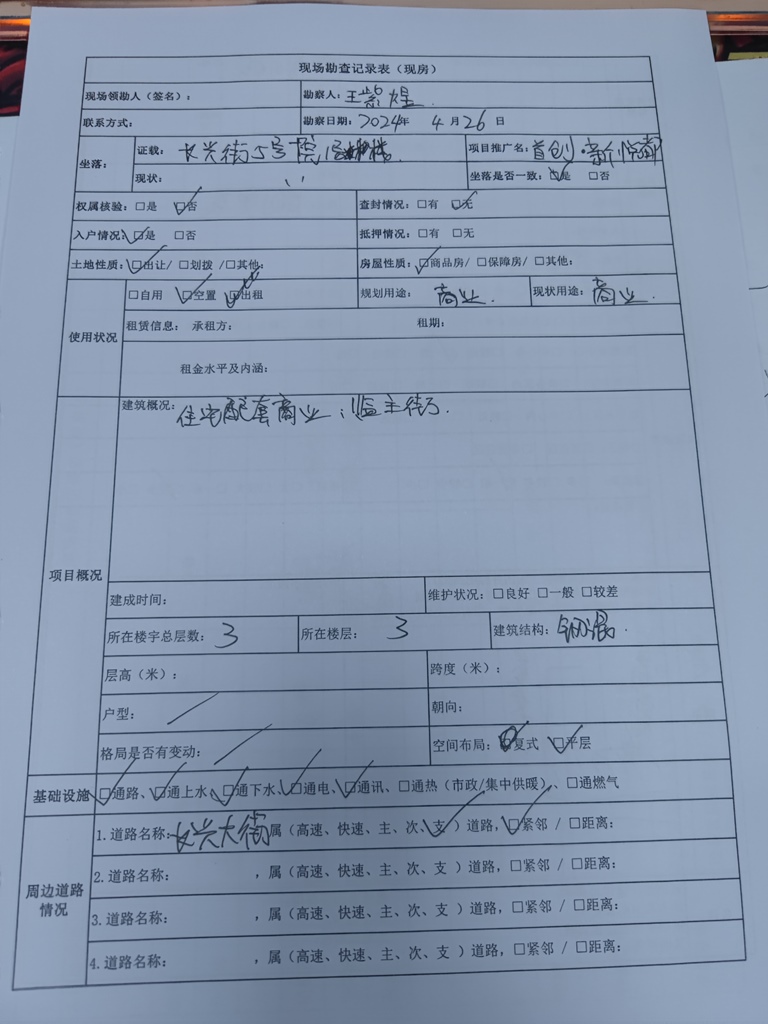 现场勘查记录表（现房）
现场领勘人（签名）： 勘察人：王紫煌
联系方式： 勘察日期：2024年 4 月 26 日
坐落： 证载：长兴街5号院 项目推广名：首创·新悦都
现状：〃 坐落是否一致：☑是 □否
权属核验：□是 ☑否 查封情况：□有 ☑无
入户情况：☑是 □否 抵押情况：□有 □无
土地性质：☑出让/□划拨/□其他： 房屋性质：☑商品房/□保障房/□其他：
使用状况 □自用 ☑空置 ☑出租 规划用途：商业. 现状用途：商业.
租赁信息：承租方： 租期：
租金水平及内涵：
项目概况 建筑概况：住宅配套商业；临主街.
建成时间： 维护状况：□良好 □一般 □较差
所在楼宇总层数：3 所在楼层：3 建筑结构：钢混.
层高（米）： 跨度（米）：
户型：／ 朝向：
格局是否有变动：／ 空间布局：☑复式 ☑平层
基础设施 ☑通路、☑通上水、☑通下水、☑通电、☑通讯、□通热（市政/集中供暖）、□通燃气
周边道路情况 1.道路名称：长兴大街属（高速、快速、主、次、支✓）道路，☑紧邻 / □距离：
2.道路名称： ，属（高速、快速、主、次、支 ）道路，□紧邻 / □距离：
3.道路名称： ，属（高速、快速、主、次、支 ）道路，□紧邻 / □距离：
4.道路名称： ，属（高速、快速、主、次、支 ）道路，□紧邻 / □距离：